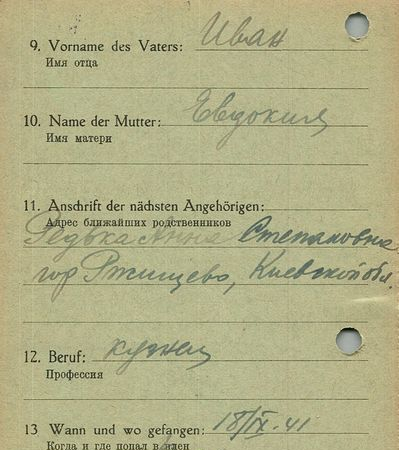 9. Vorname des Vaters: Иван
Имя отца
10. Name der Mutter: Евдокия
Имя матери
11. Anschrift der nächsten Angehörigen:
Адрес ближайших родственников
Редька Анна Степановна
гор Ржищево, Киевской обл.
12. Beruf: кузнец
Профессия
13 Wann und wo gefangen: 18/IX. 41
Когда и где попал в плен